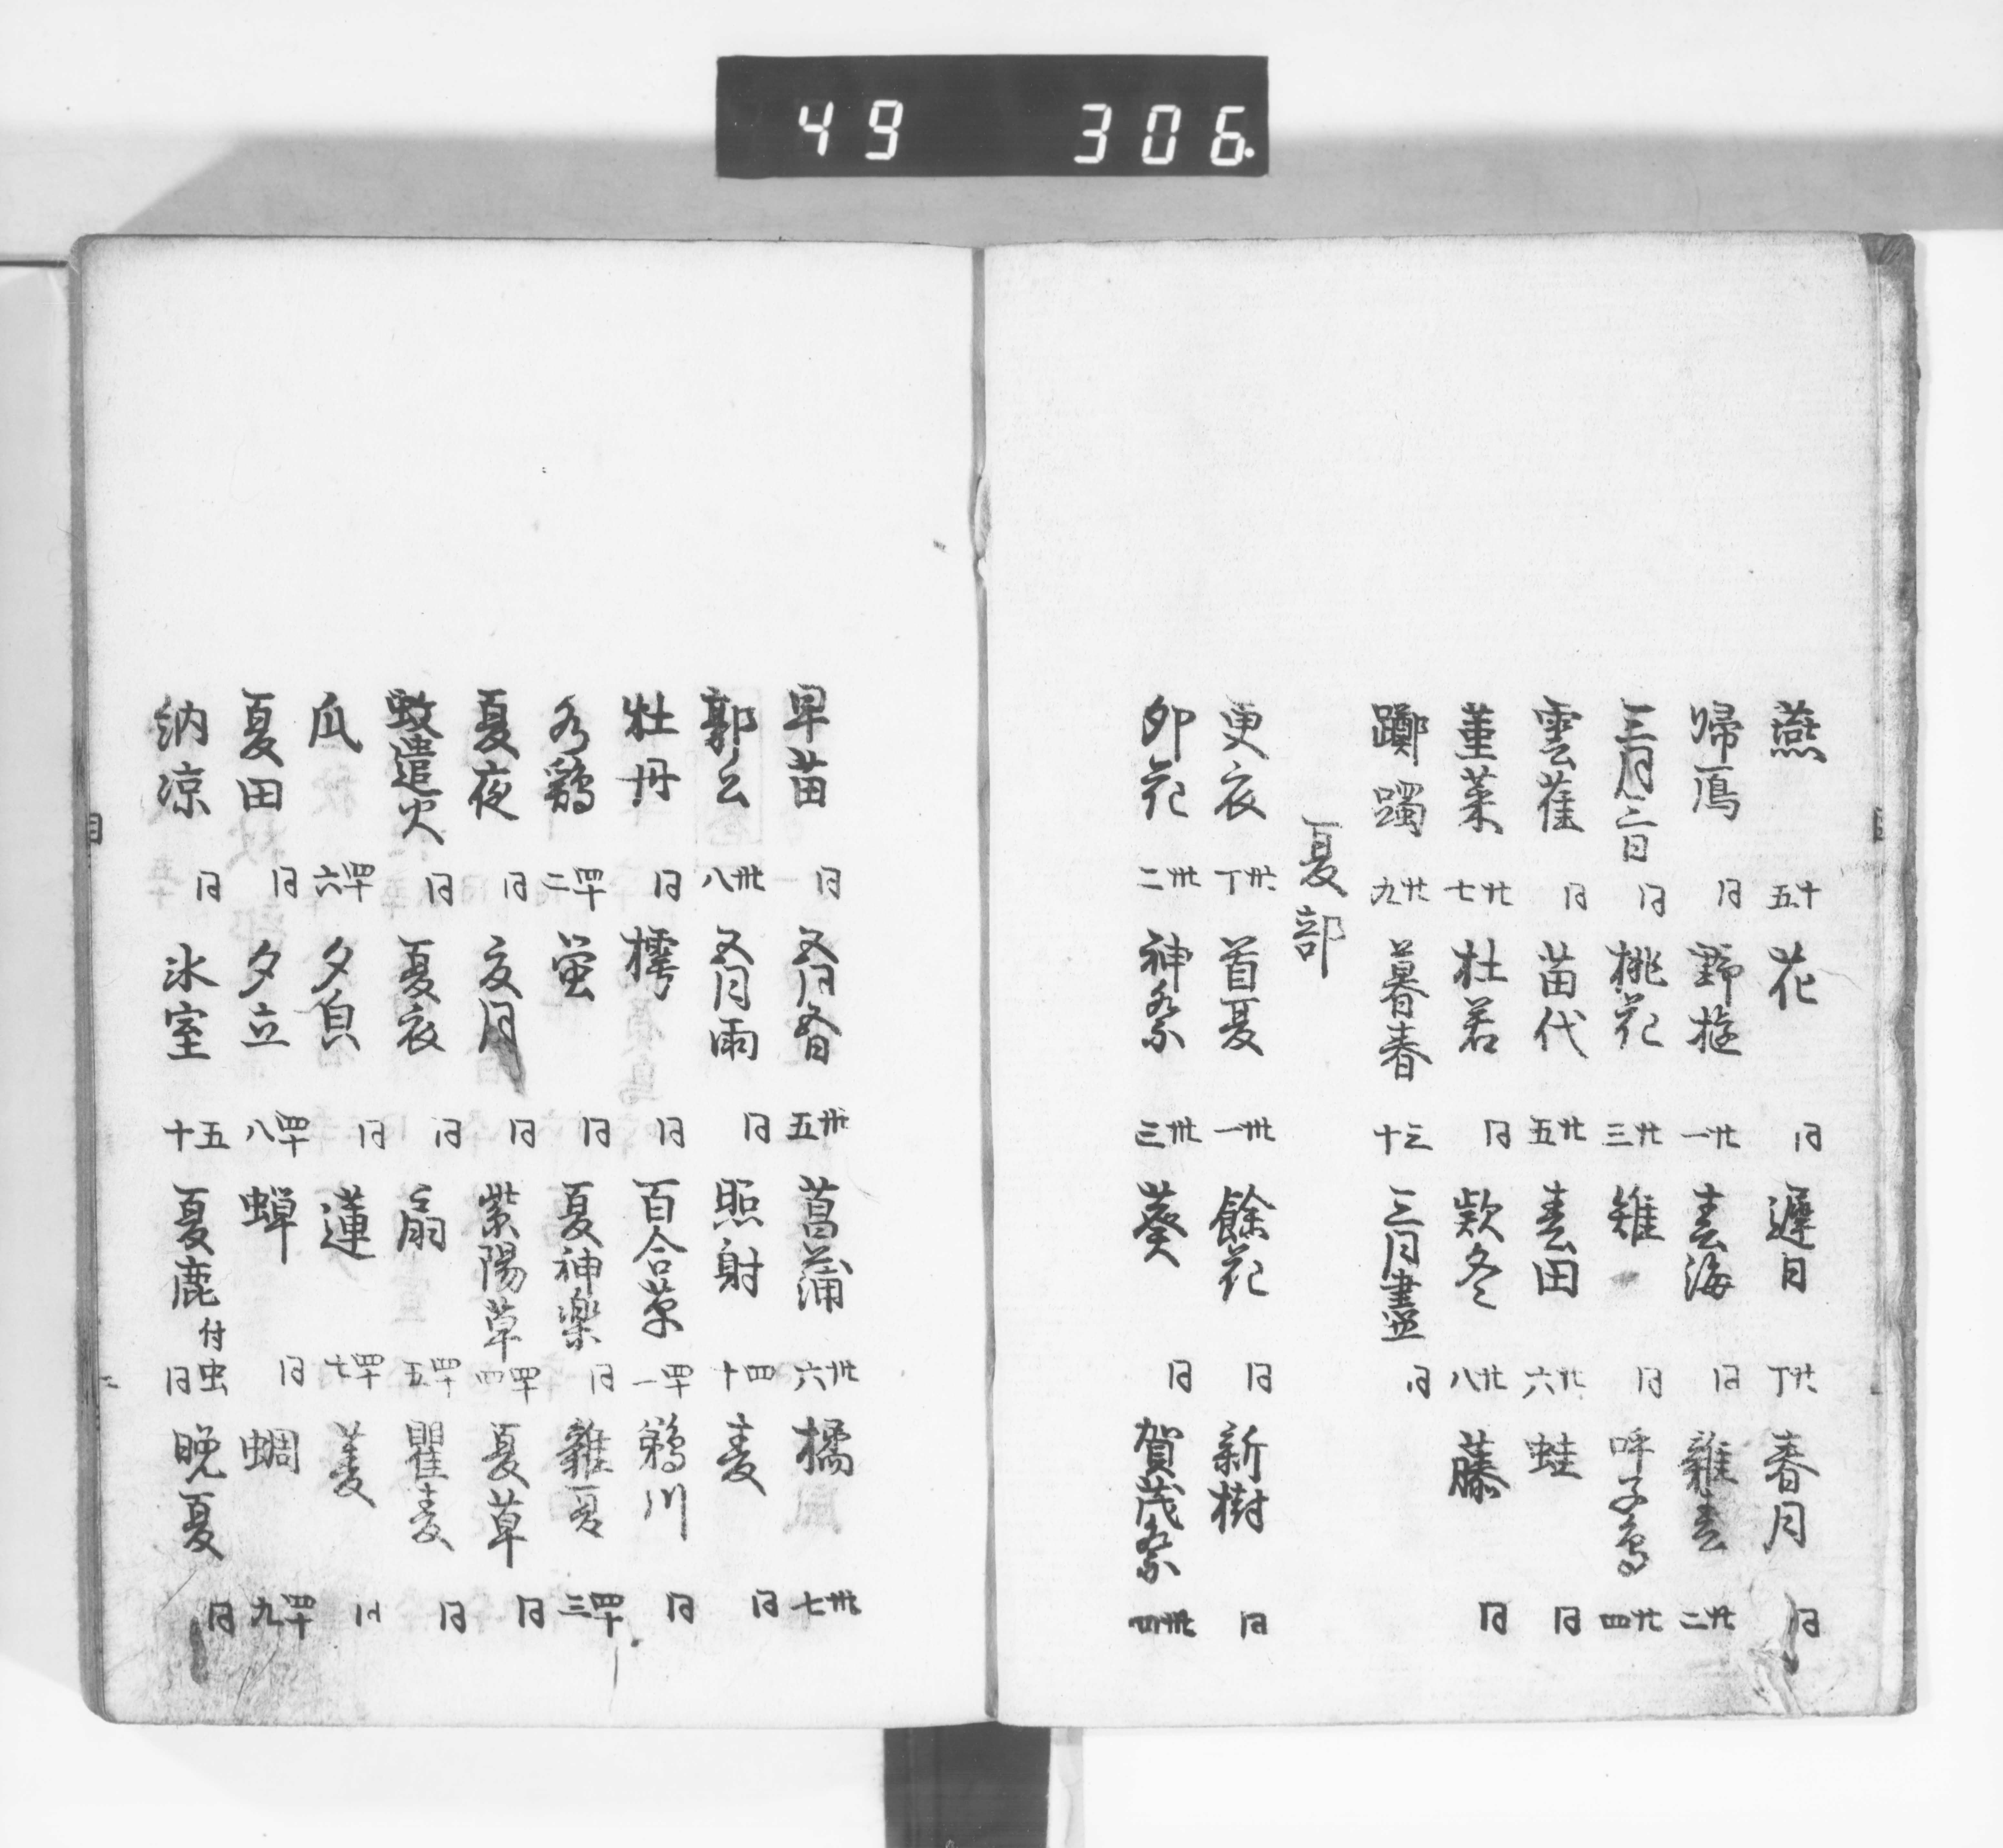 49 306
燕 十五 花 同 遲日 廿丁 春月 同
帰鴈 同 野遊 廿一 春海 同 雜春 廿二
三月三日 同 桃花 廿三 雉 同 呼子鳥 廿四
雲雀 同 苗代 廿五 春田 廿六 蛙 同
菫菜 廿七 杜若 同 欵冬 廿八 藤 同
躑躅 廿九 暮春 三十 三月盡 同
夏部
更衣 卅丁 首夏 卅一 餘花 同 新樹 同
卯花 卅二 神祭 卅三 葵 同 賀茂祭 卅四
早苗 同 五月五日 卅五 菖蒲 卅六 橘 卅七
郭公 卅八 五月雨 同 照射 四十 麦 同
牡丹 同 樗 同 百合草 四十一 鵜川 同
水鶏 四十二 蛍 同 夏神楽 同 雜夏 四十三
夏夜 同 夏月 同 紫陽草 四十四 夏草 同
蚊遣火 同 夏衣 同 扇 四十五 瞿麦 同
瓜 四十六 夕皃 同 蓮 四十七 菱 同
夏田 同 夕立 四十八 蝉 同 蜩 四十九
納凉 同 氷室 五十 夏鹿 付虫 同 晩夏 同